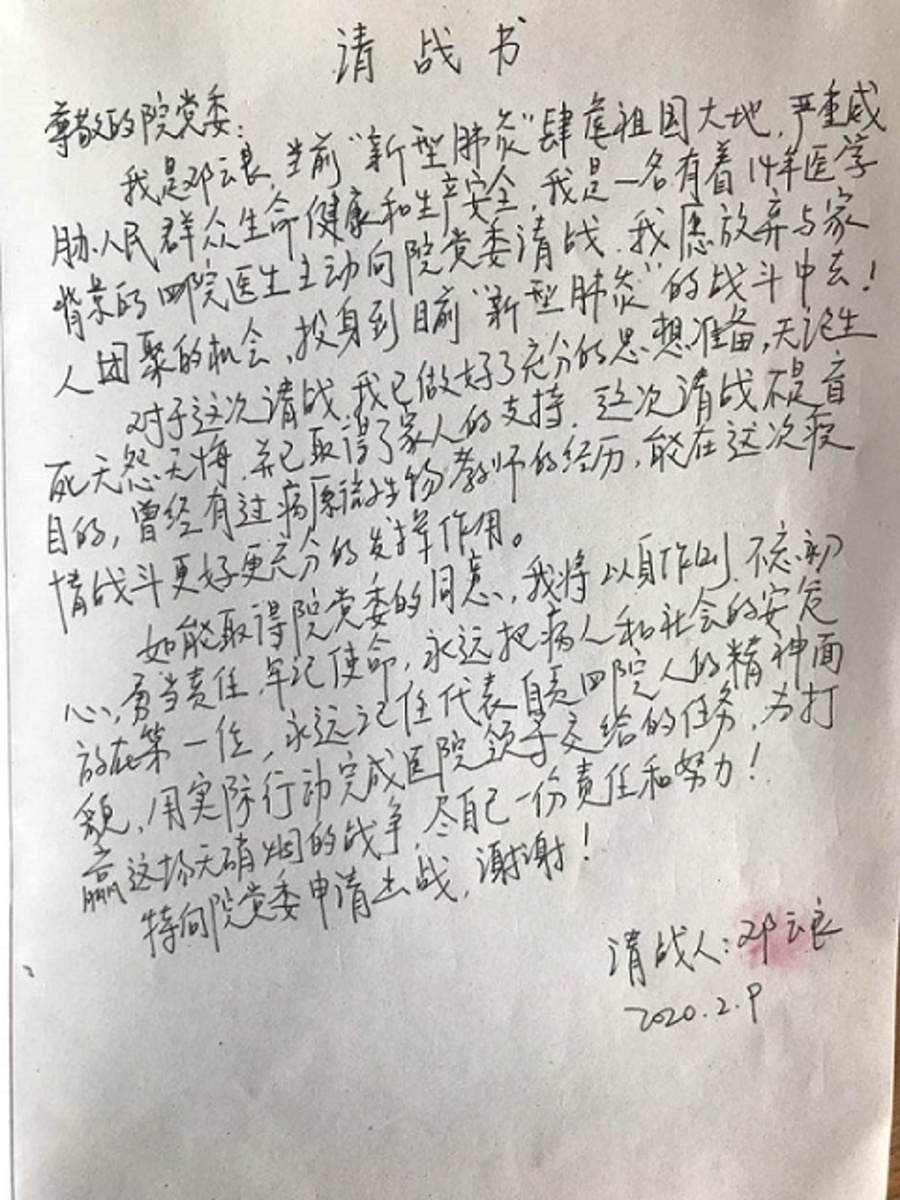 请战书
尊敬的院党委:
我是邓云良,当前“新型肺炎”肆虐祖国大地,严重威
胁人民群众生命健康和生产安全,我是一名有着14年医学
背景的四院医生主动向院党委请战,我愿放弃与家
人团聚的机会,投身到目前“新型肺炎”的战斗中去!
对于这次请战,我已做好了充分的思想准备,无论生
死无怨无悔,并已取得了家人的支持,这次请战不是盲
目的,曾经有过病原微生物教师的经历,能在这次疫
情战斗更好更充分的发挥作用。
如能取得院党委的同意,我将以身作则,不忘初
心,勇当责任,牢记使命,永远把病人和社会的安危
放在第一位,永远记住代表自贡四院人的精神面
貌,用实际行动完成医院领导交给的任务,为打
赢这场无硝烟的战争,尽自己一份责任和努力!
特向院党委申请出战,谢谢!
请战人:邓云良
2020.2.9